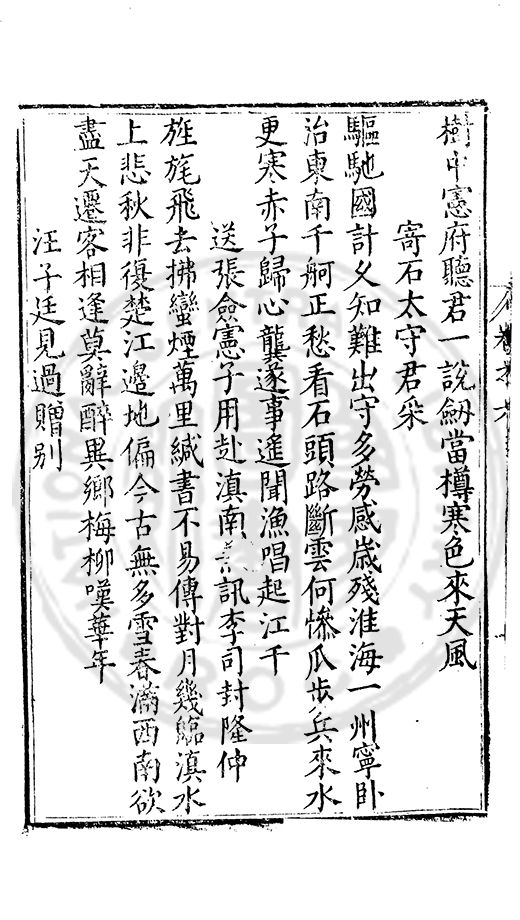 樹中憲府聽君一說劒當樽寒色來天風
寄石太守君采
驅馳國計久知難出守多勞感歲殘淮海一州寧卧
治東南千舸正愁看石頭路斷雲何慘瓜步兵來水
更寒赤子歸心龔遂事遙聞漁唱起江干
送張僉憲子用赴滇南訊李司封隆仲
旌旄飛去拂蠻煙萬里緘書不易傳對月幾臨滇水
上悲秋非復楚江邊地偏今古無多雪春滿西南欲
盡天遷客相逢莫辭醉異鄉梅柳嘆華年
汪子廷見過贈别